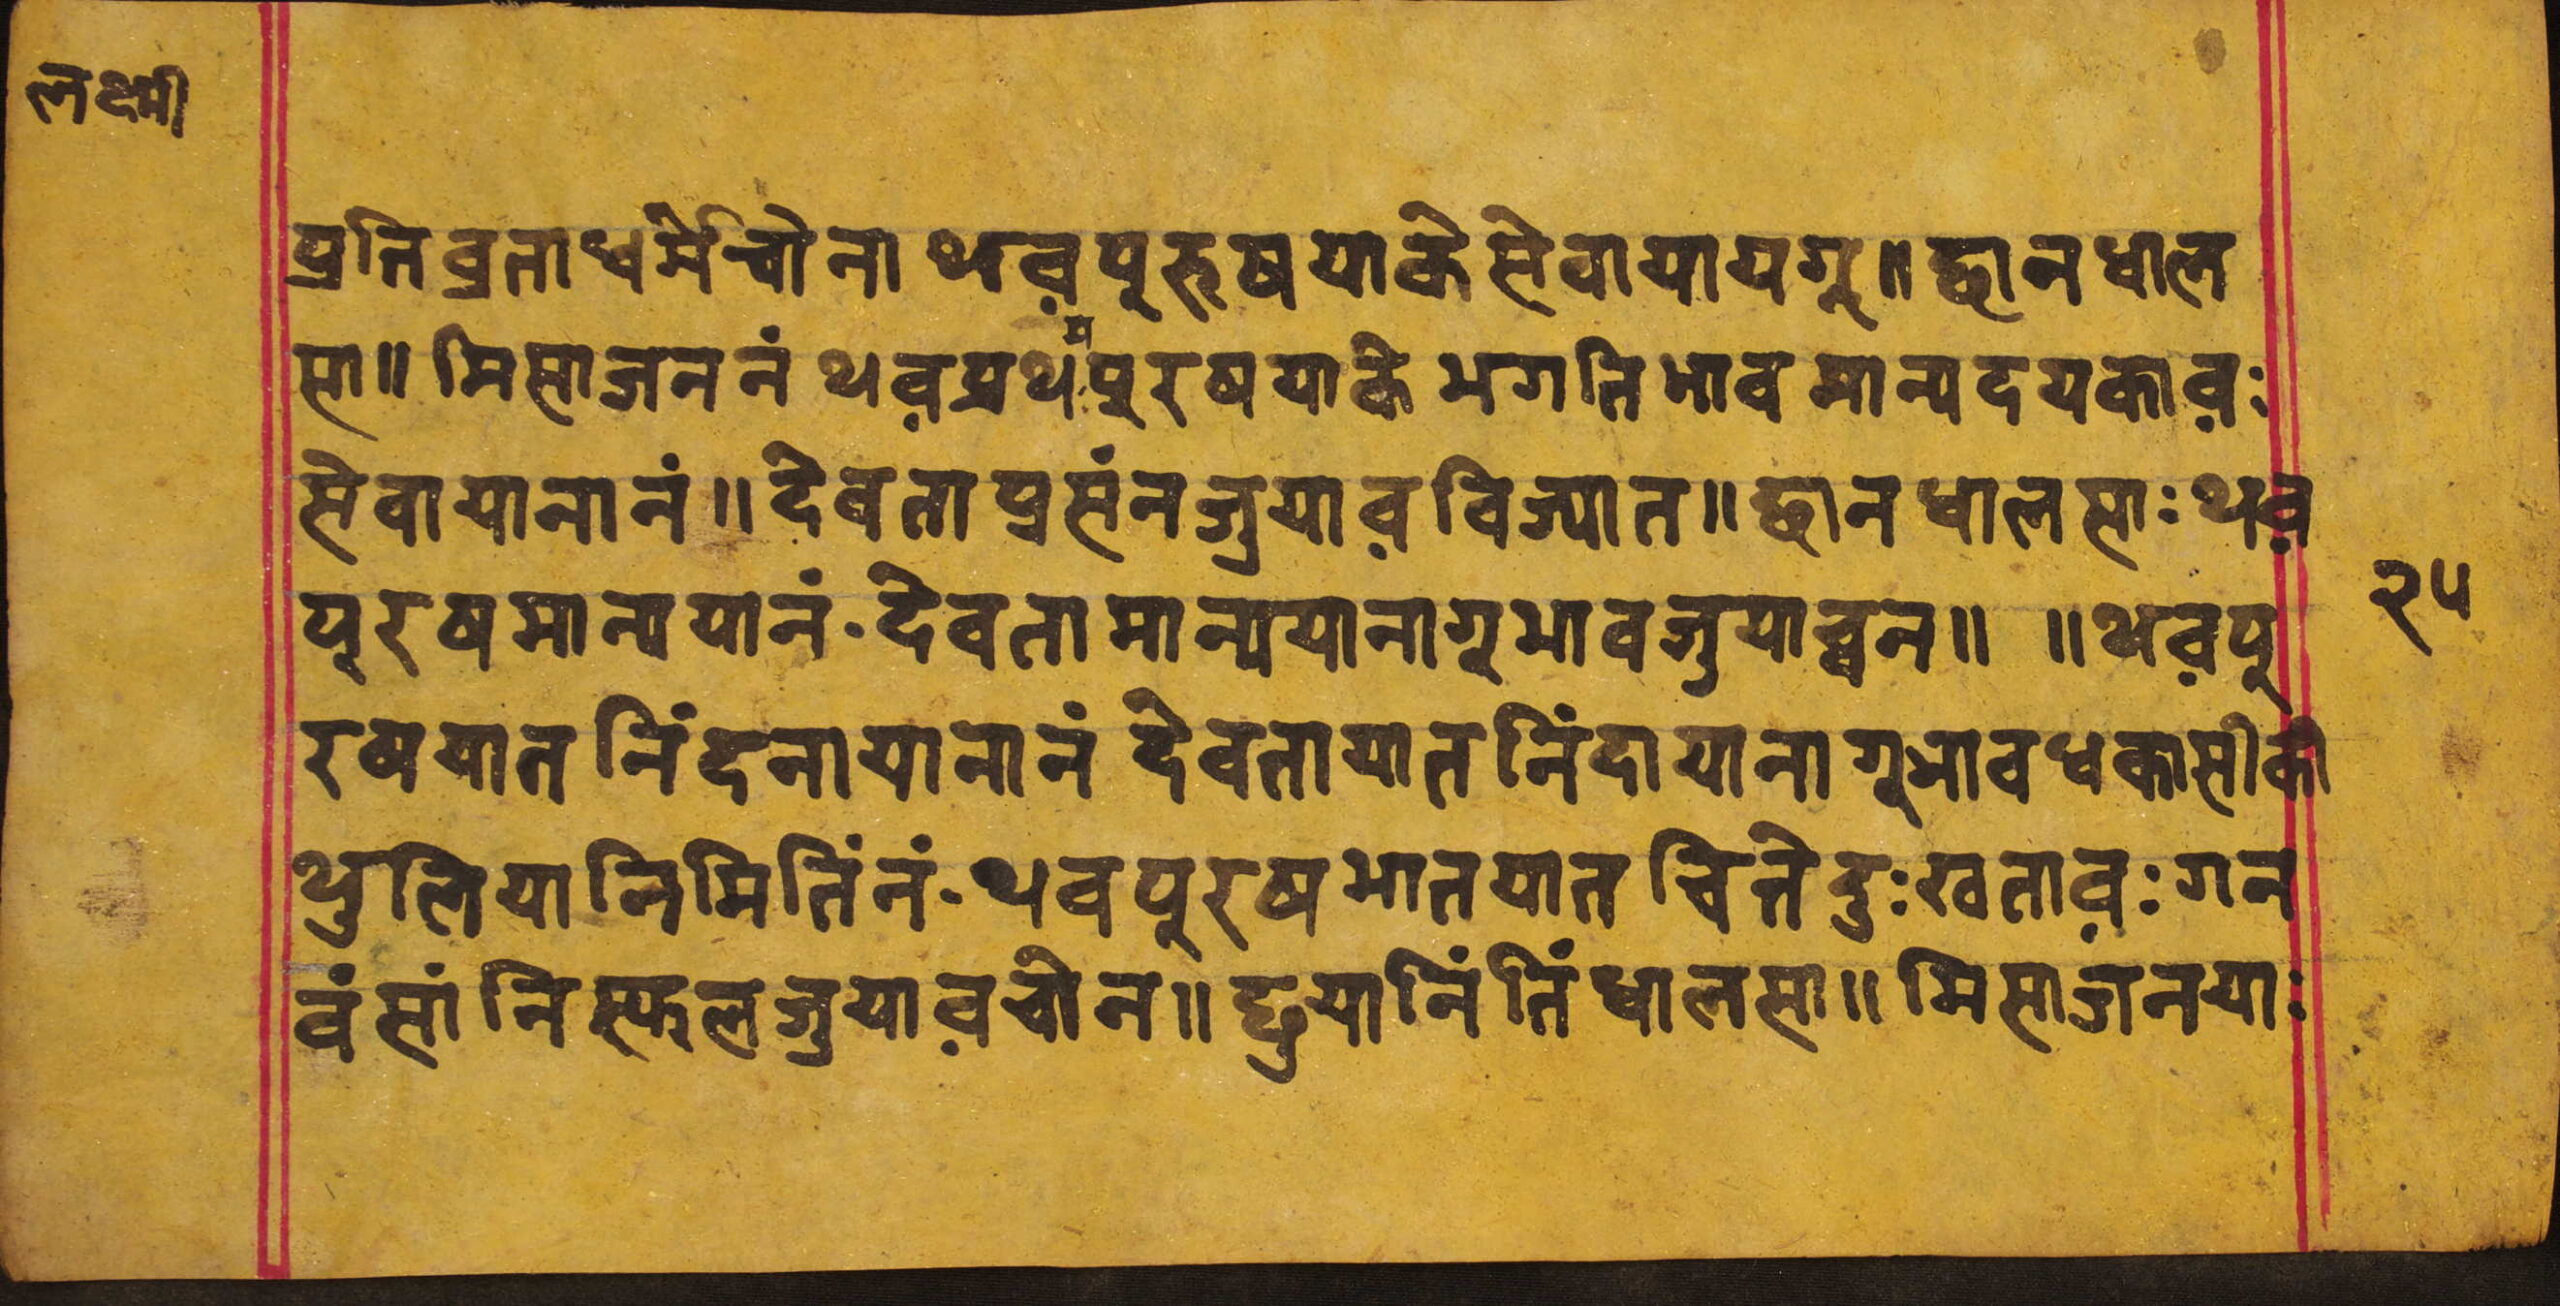 लक्ष्मी
प्रतिव्रताधर्मचोना थव़पूरूषयाकेसेवायायगू॥ छानधाल
सा॥ मिसाजननं थव़प्रथंमपूरषयाके भगतिभाव मान्यदयकाव़ः
सेवायानानं॥ देवता प्रसंनजुयाव़ विज्यात॥ छानधालसाः थव़
पूरषमान्ययानं· देवतामान्ययानागूभावजुयाव़्वन॥ ॥ थव़पू
रषयात निंदनायानानं देवतायात निंदायानागूभावधकासीकी
थुलियानिमितिंनं· थवपूरषभातयात चित्ते दुःखताव़ः गन
वंसां निस्फलजुयाव़चोन॥ छुयानिंतिंधालसा॥ मिसाजनयाः
२५